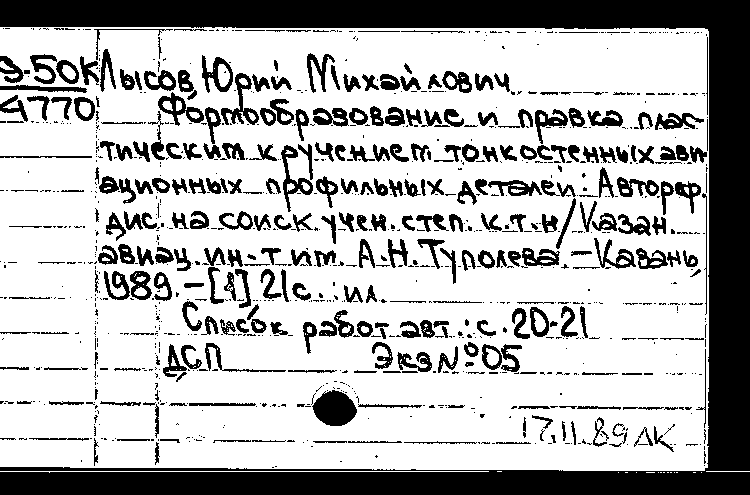 Э-50К Лысов, Юрий Михайлович
4770 Формообразование и правка плас-
тическим кручением тонкостенных ави-
ационных профильных деталей: Автореф.
дис. на соиск. учен. степ. к.т.н/Казан.
авиац. ин-т им. А.Н. Туполева. – Казань,
1989. – [1] 21с. : ил.
Список работ авт.: с. 20-21
ДСП Экз № 05
17.11.89 ДК